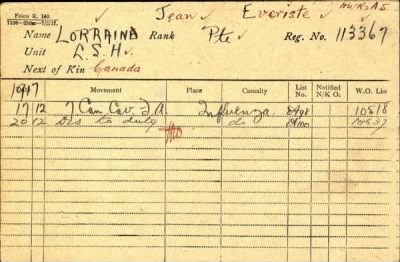 FORM R. 149.
Jean Everiste
Name LORRAIN Rank Pte Reg. No. 113367
Unit L.S.H.
Next of Kin Canada
1917 Movement Place Casualty List No. Notified N/K O. W.O. List
17 12 7 Can Cav F.A. Influenza. 10818
20 12 Dis to duty do